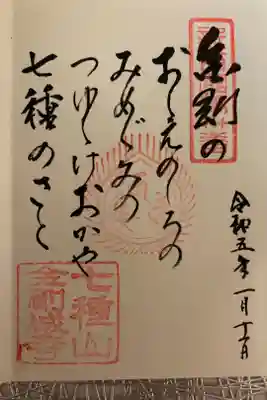 金剛の
おしえのその
みめぐみの
つゆしげおかや
七種のさと
令和五年 一月
七種山
金剛城寺